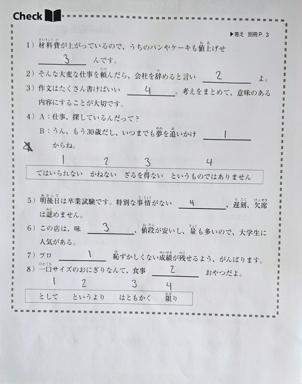 Check
▶答え 別冊P.3
1）材料費が上がっているので、うちのパンやケーキも値上げせ
3 んです。
2）そんな大変な仕事を頼んだら、会社を辞めると言い 2 よ。
3）作文はたくさん書けばいい 4 。考えをまとめて、意味のある
内容にすることが大切です。
4）A：仕事、探しているんだって？
B：うん、もう30歳だし、いつまでも夢を追いかけ 1
からね。
1 2 3 4
てはいられない かねない ざるを得ない というものではありません
5）明後日は卒業試験です。特別な事情がない 4 、遅刻、欠席
は認めません。
6）この店は、味 3 、値段が安いし、量も多いので、大学生に
人気がある。
7）プロ 1 恥ずかしくない成績が残せるよう、がんばります。
8）一口サイズのおにぎりなんて、食事 2 おやつだよ。
1 2 3 4
として というより はともかく 限り